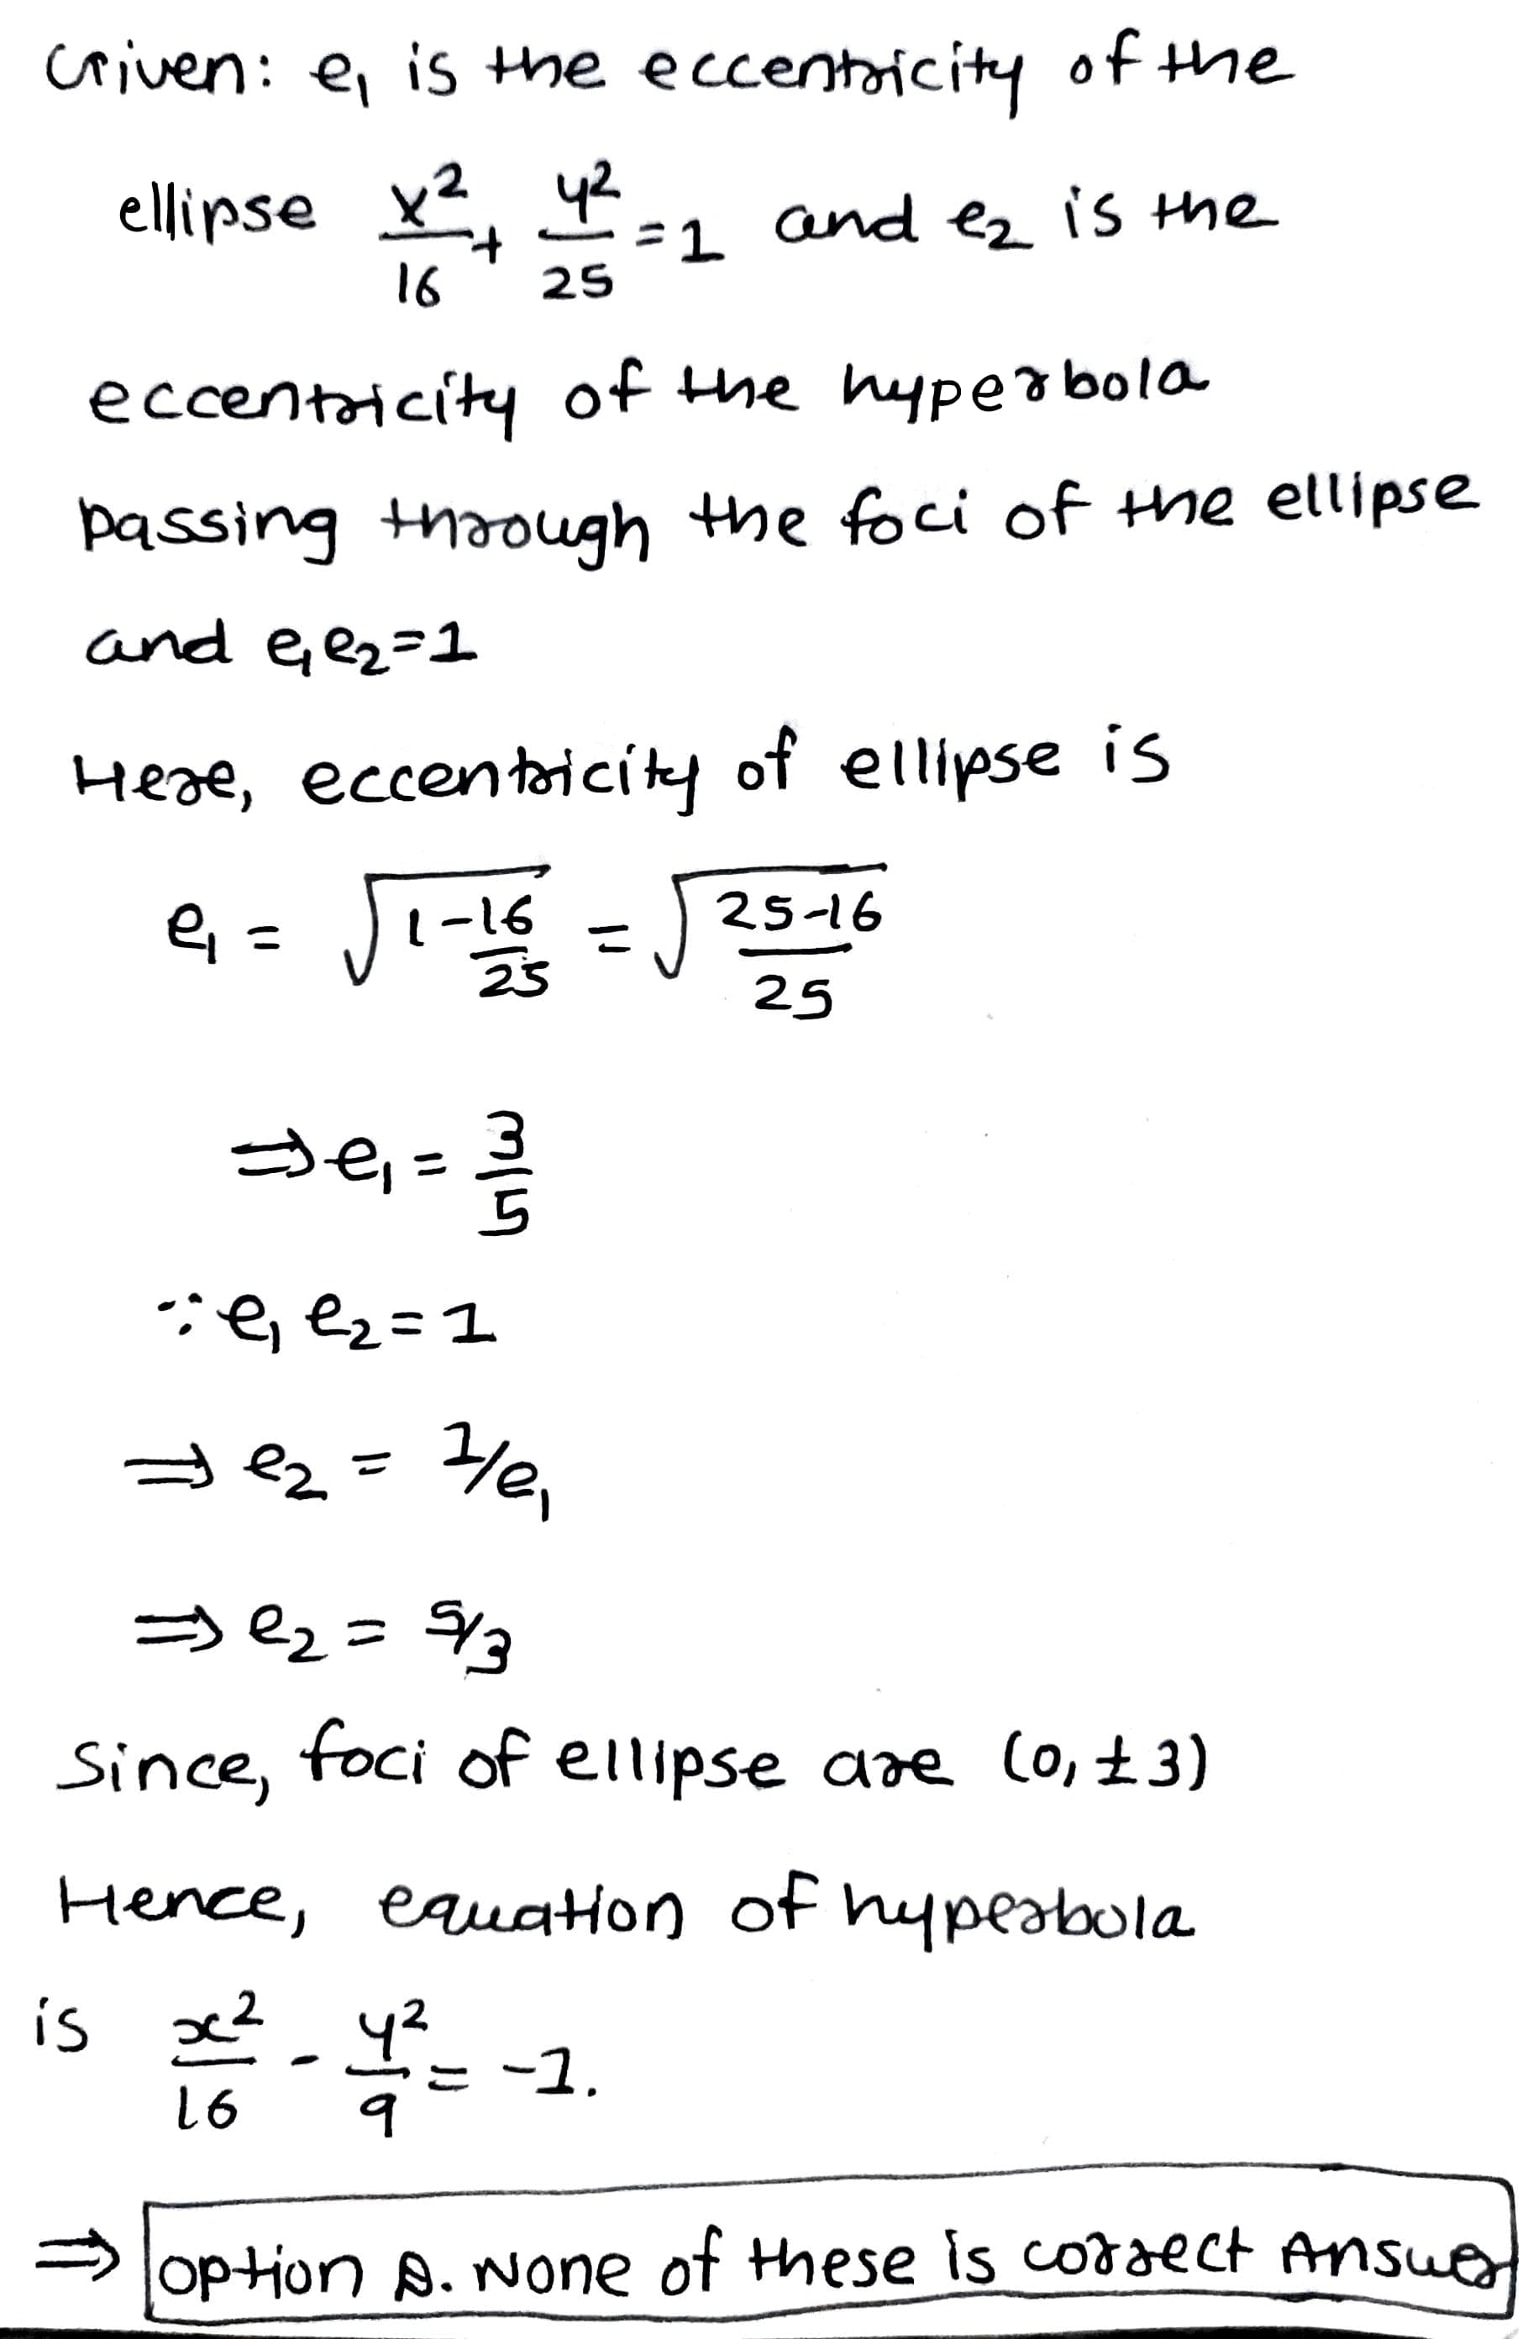 Given: e₁ is the eccentricity of the
ellipse x²/16 + y²/25 = 1 and e₂ is the
eccentricity of the hyperbola
passing through the foci of the ellipse
and e₁e₂=1
Here, eccentricity of ellipse is
e₁ = √(1-16/25) = √((25-16)/25)
⇒ e₁ = 3/5
∵ e₁ e₂ = 1
⇒ e₂ = 1/e₁
⇒ e₂ = 5/3
Since, foci of ellipse are (0, ±3)
Hence, equation of hyperbola
is x²/16 - y²/9 = -1.
⇒ option D. None of these is correct Answer